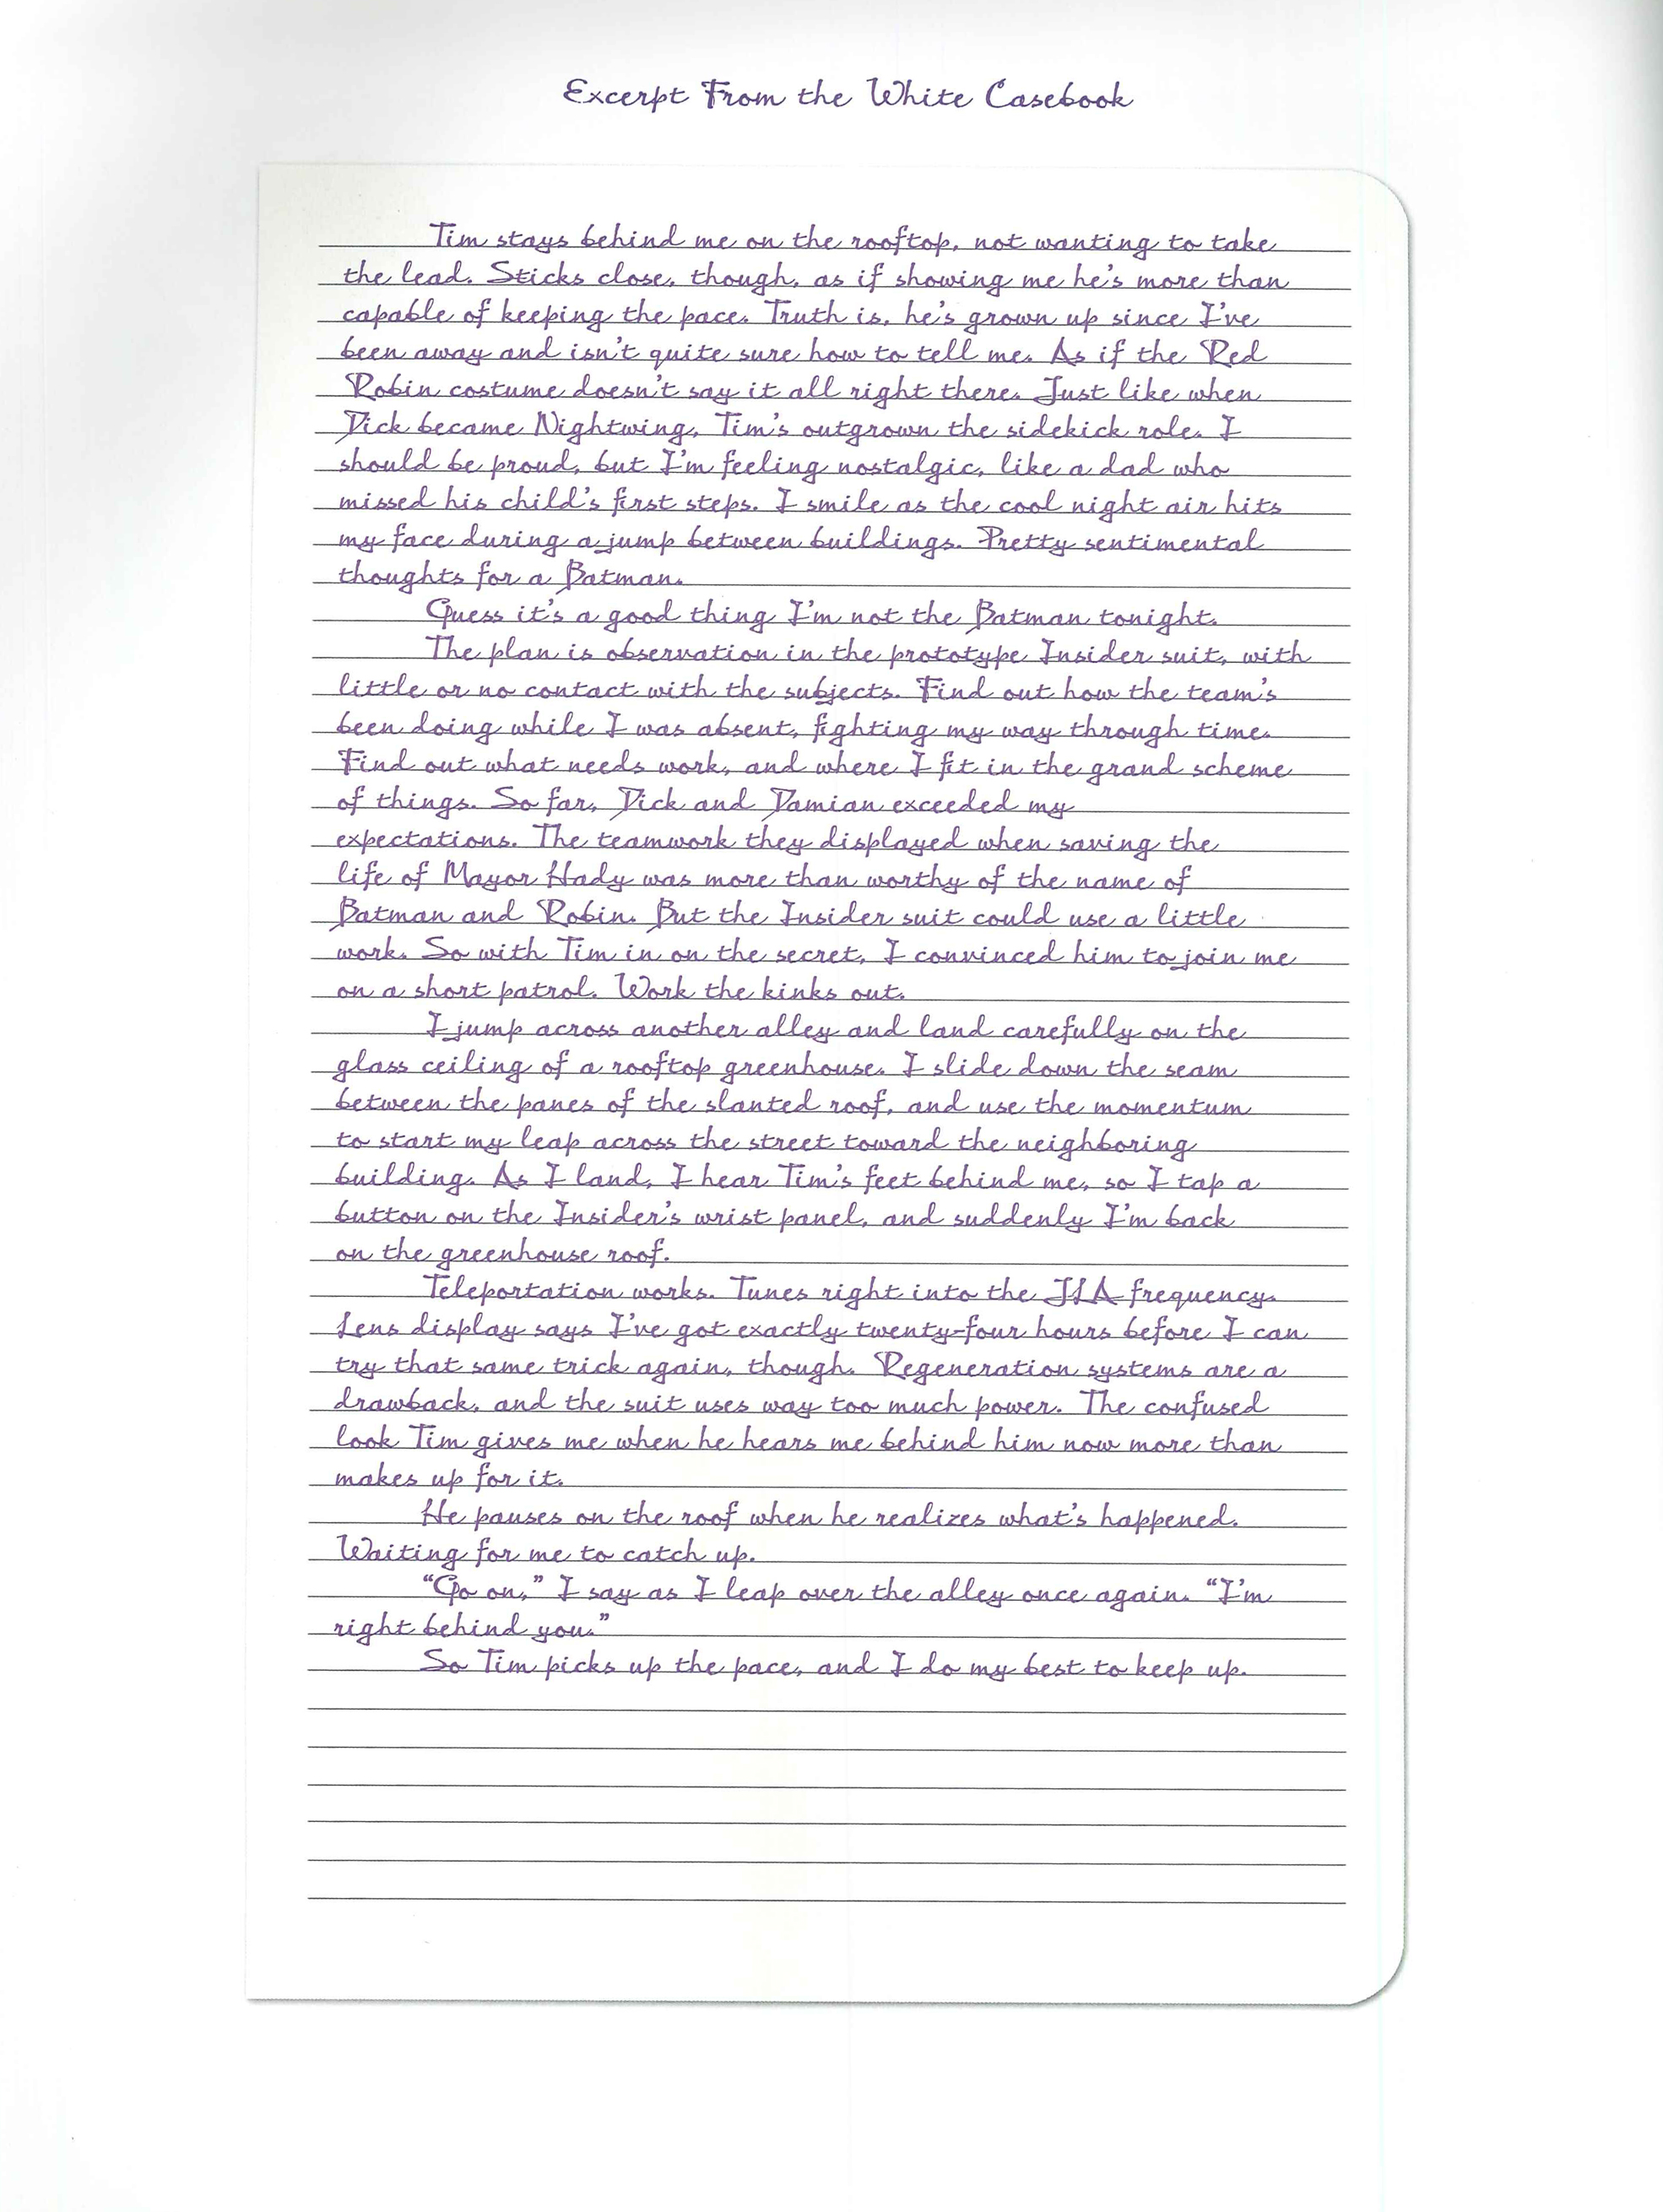 Excerpt From the White Casebook
Tim stays behind me on the rooftop, not wanting to take
the lead. Sticks close, though, as if showing me he's more than
capable of keeping the pace. Truth is, he's grown up since I've
been away and isn't quite sure how to tell me. As if the Red
Robin costume doesn't say it all right there. Just like when
Dick became Nightwing, Tim's outgrown the sidekick role. I
should be proud, but I'm feeling nostalgic, like a dad who
missed his child's first steps. I smile as the cool night air hits
my face during a jump between buildings. Pretty sentimental
thoughts for a Batman.
Guess it's a good thing I'm not the Batman tonight.
The plan is observation in the prototype Insider suit, with
little or no contact with the subjects. Find out how the team's
been doing while I was absent, fighting my way through time.
Find out what needs work, and where I fit in the grand scheme
of things. So far, Dick and Damian exceeded my
expectations. The teamwork they displayed when saving the
life of Mayor Hady was more than worthy of the name of
Batman and Robin. But the Insider suit could use a little
work. So with Tim in on the secret, I convinced him to join me
on a short patrol. Work the kinks out.
I jump across another alley and land carefully on the
glass ceiling of a rooftop greenhouse. I slide down the seam
between the panes of the slanted roof, and use the momentum
to start my leap across the street toward the neighboring
building. As I land, I hear Tim's feet behind me, so I tap a
button on the Insider's wrist panel, and suddenly I'm back
on the greenhouse roof.
Teleportation works. Tunes right into the JLA frequency.
Lens display says I've got exactly twenty-four hours before I can
try that same trick again, though. Regeneration systems are a
drawback, and the suit uses way too much power. The confused
look Tim gives me when he hears me behind him now more than
makes up for it.
He pauses on the roof when he realizes what's happened.
Waiting for me to catch up.
"Go on," I say as I leap over the alley once again. "I'm
right behind you."
So Tim picks up the pace, and I do my best to keep up.